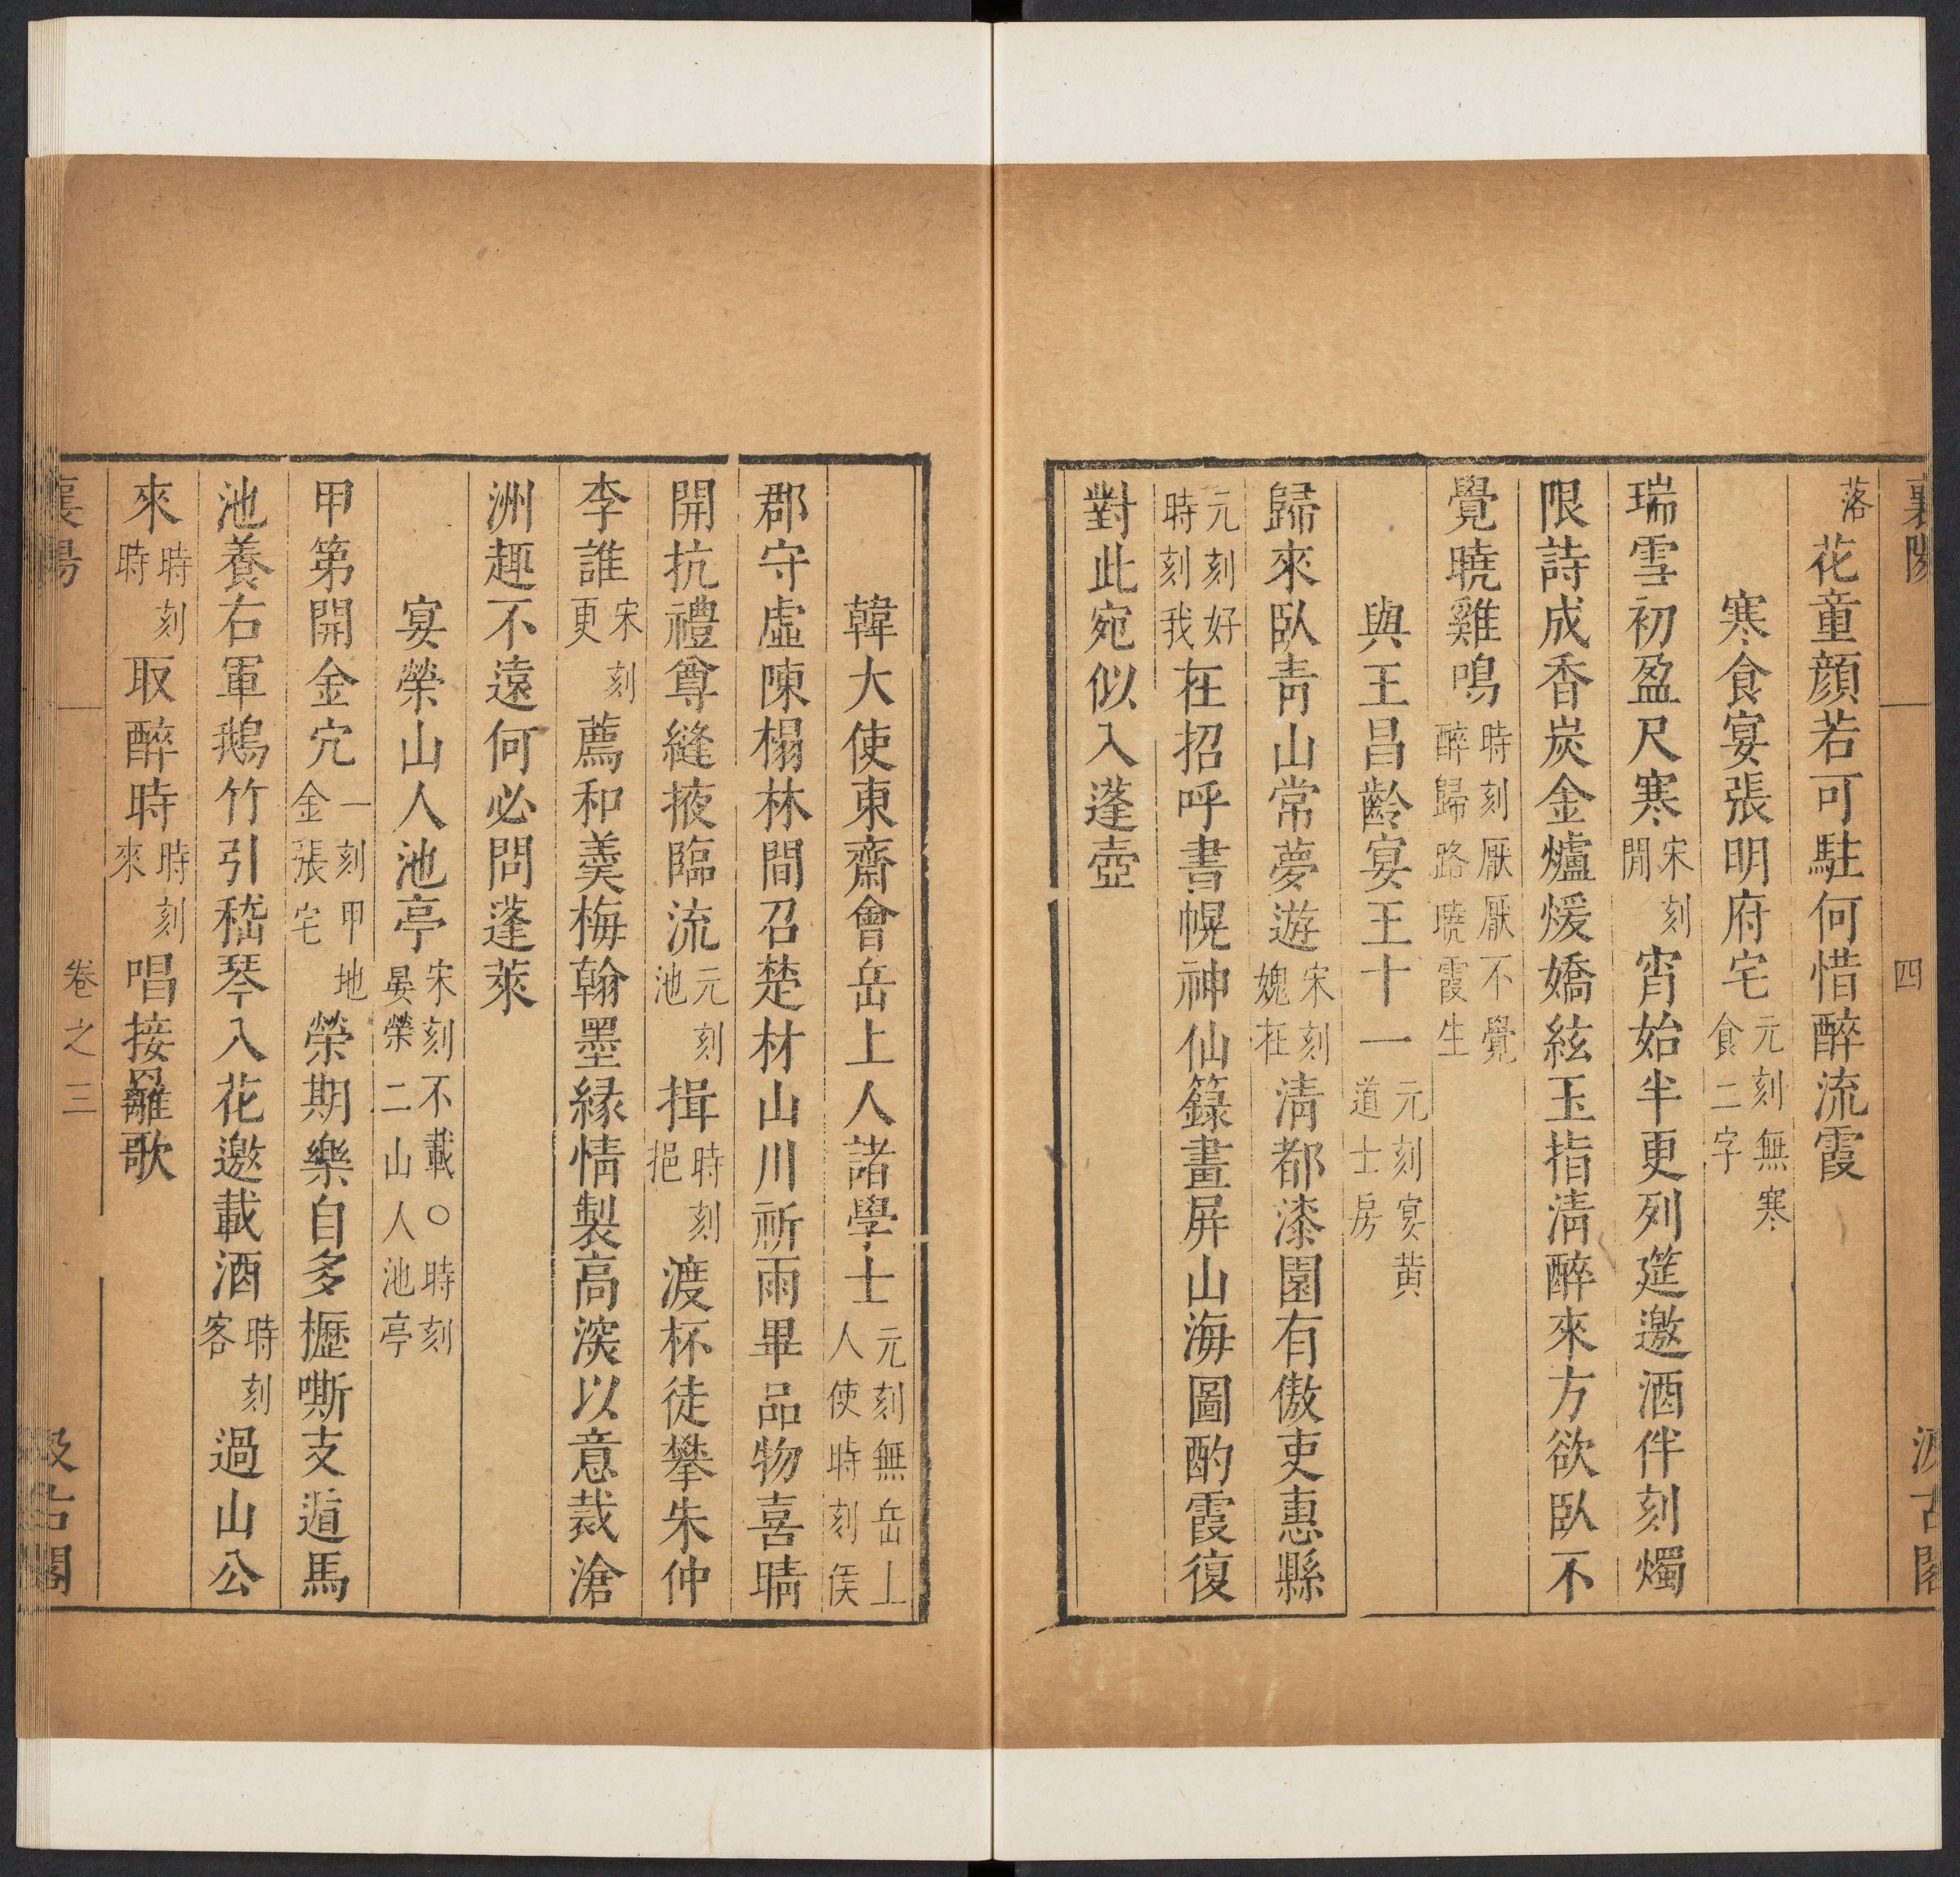 襄陽 四 汲古閣
落花童顏若可駐何惜醉流霞
寒食宴張明府宅元刻無寒食二字
瑞雪初盈尺寒宋刻閒宵始半更列筵邀酒伴刻燭
限詩成香炭金爐煖嬌絃玉指淸醉來方欲臥不
覺曉雞鳴時刻厭厭不覺醉歸路曉霞生
與王昌齡宴王十一元刻宴黄道士房
歸來臥靑山常夢遊宋刻媿在淸都漆園有傲吏惠縣
元刻好時刻我在招呼書幌神仙籙畫屏山海圖酌霞復
對此宛似入蓬壺
韓大使東齋會岳上人諸學士元刻無岳上人使時刻矦
郡守虛陳榻林間召楚材山川祈雨畢品物喜晴
開抗禮尊縫掖臨流元刻池揖時刻挹渡杯徒攀朱仲
李誰宋刻更薦和羹梅翰墨緣情製高深以意裁滄
洲趣不遠何必問蓬萊
宴榮山人池亭宋刻不載○時刻晏榮二山人池亭
甲第開金穴一刻甲地金張宅榮期樂自多櫪嘶支遁馬
池養右軍鵝竹引嵇琴入花邀載酒時刻客過山公
來時刻時取醉時時刻來唱接䍦歌
襄陽 卷之三 汲古閣